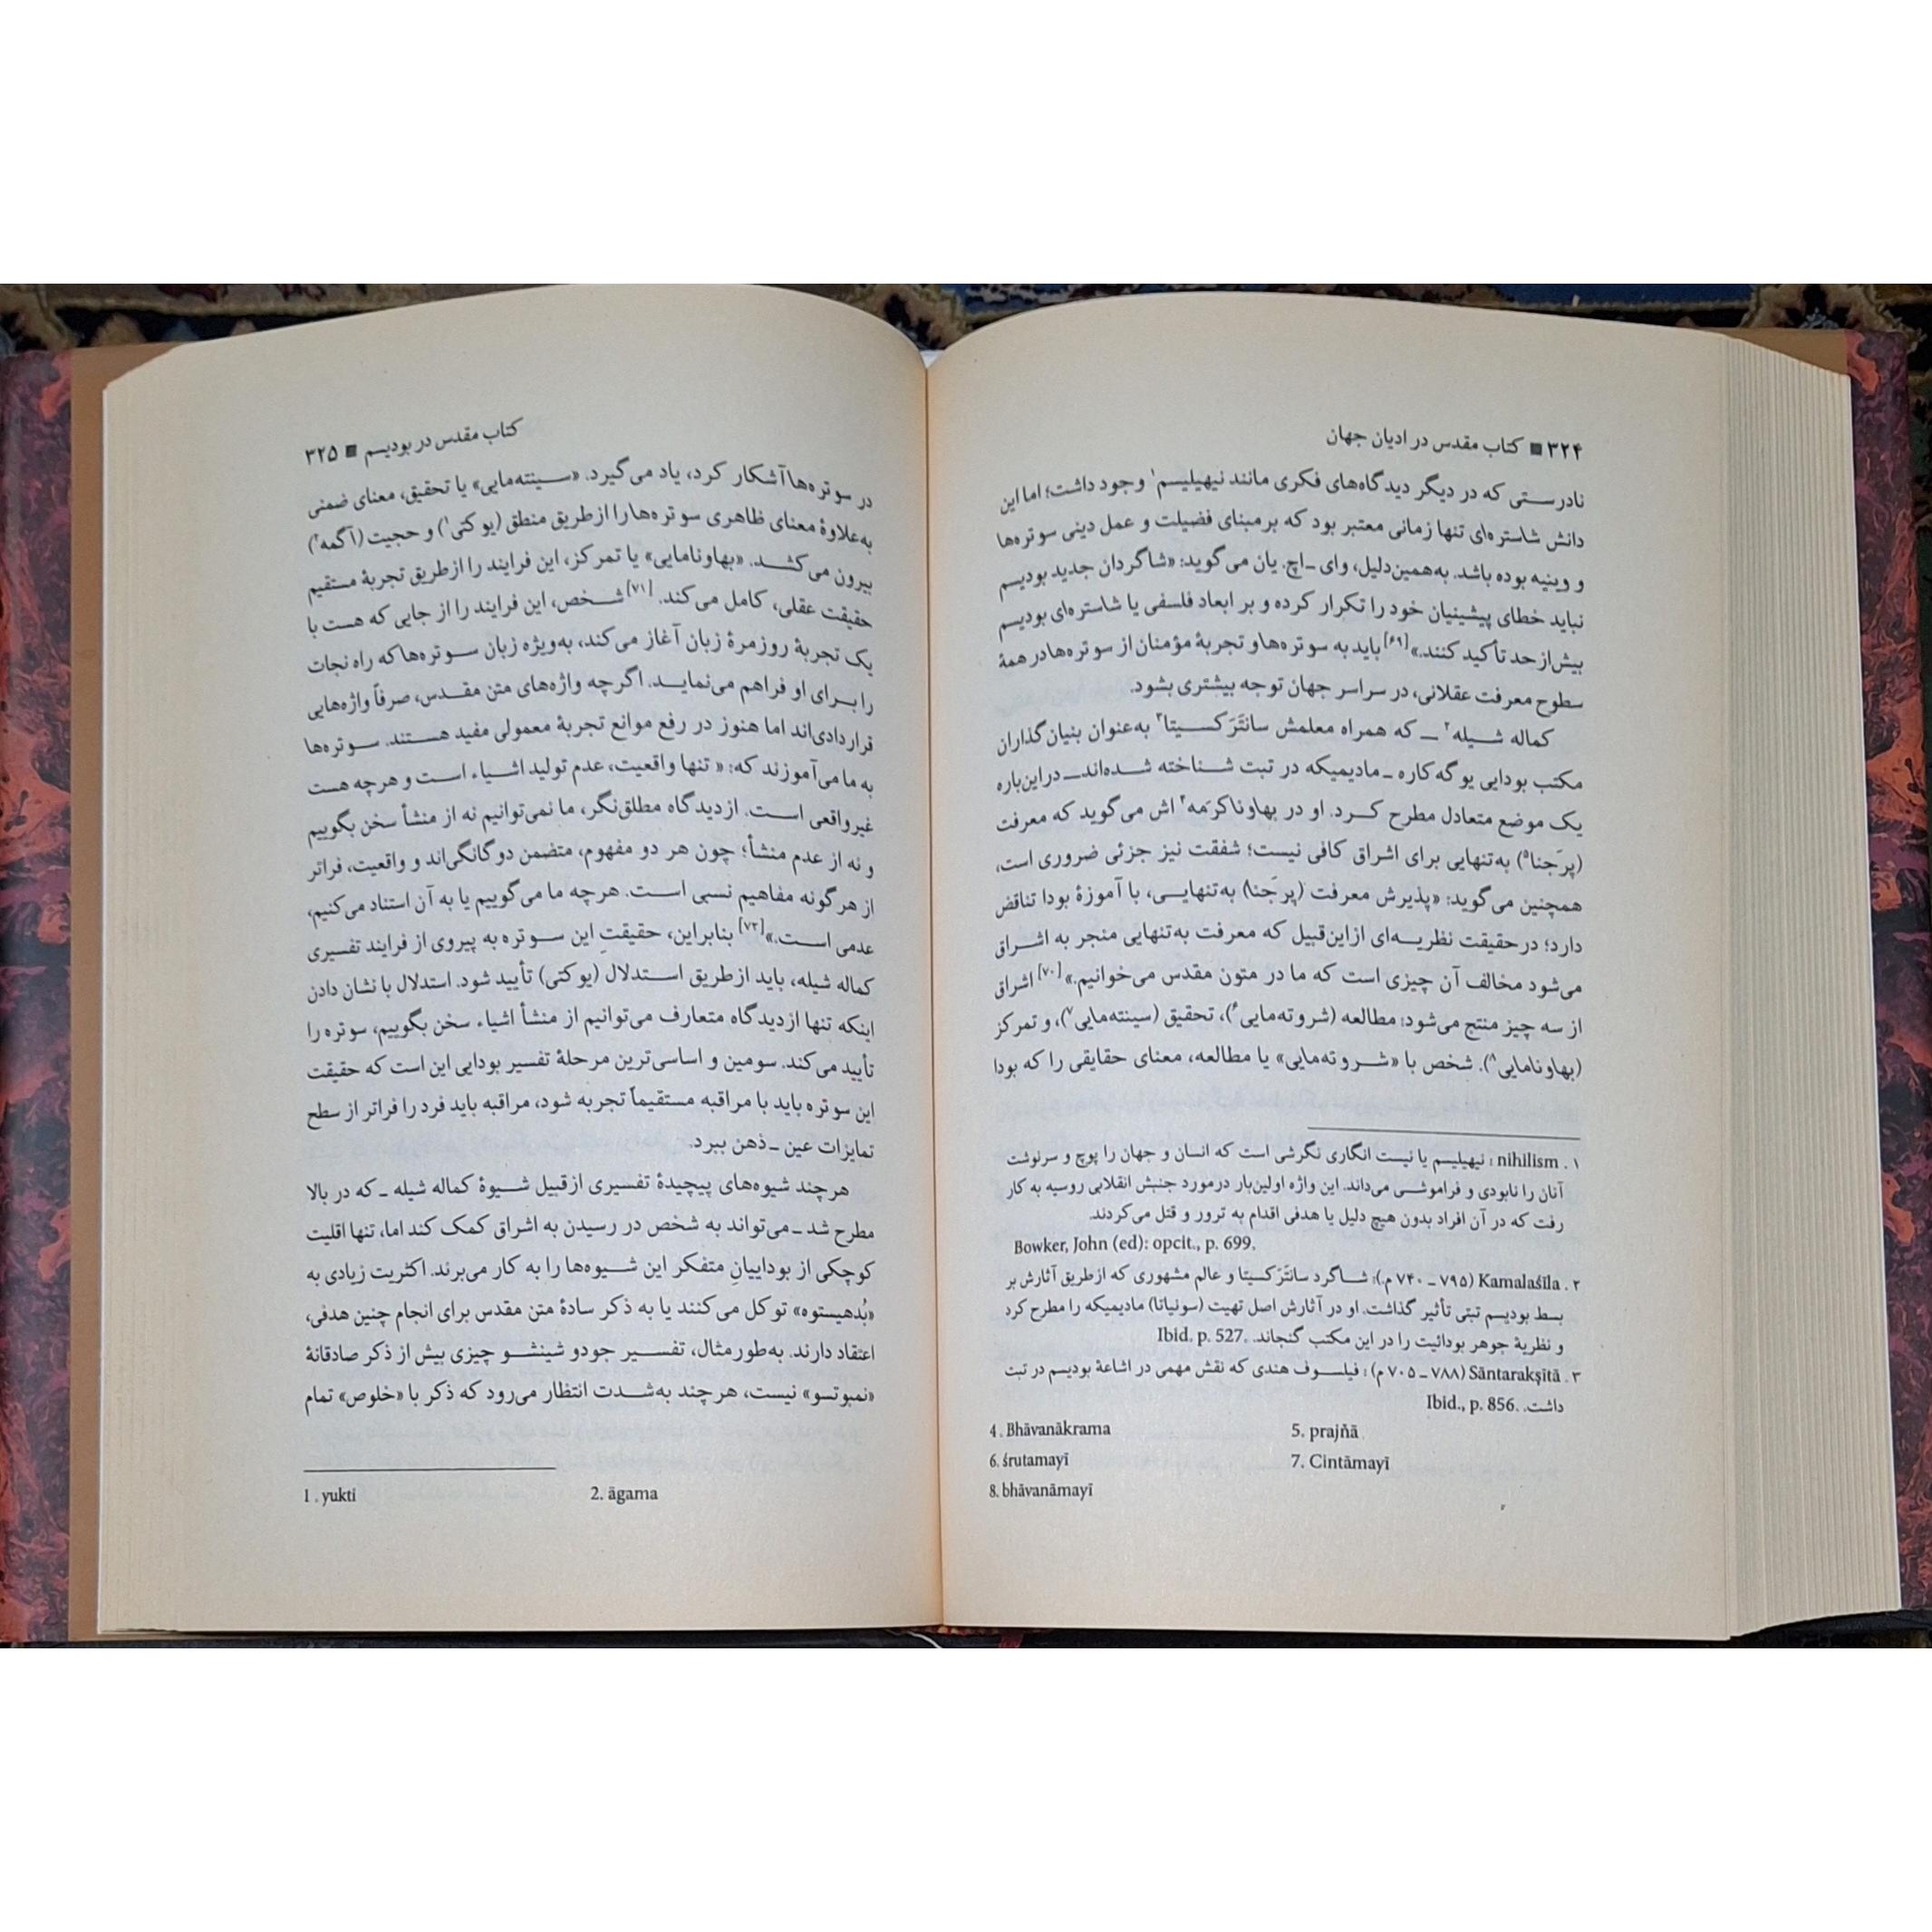 ۳۲۴ ■ کتاب مقدس در ادیان جهان
نادرستی که در دیگر دیدگاه‌های فکری مانند نیهیلیسم۱ وجود داشت؛ اما این
دانش شاستره‌ای تنها زمانی معتبر بود که برمبنای فضیلت و عمل دینی سوتره‌ها
و وینیه بوده باشد. به‌همین‌دلیل، وای ـ اچ. یان می‌گوید: «شاگردان جدید بودیسم
نباید خطای پیشینیان خود را تکرار کرده و بر ابعاد فلسفی یا شاستره‌ای بودیسم
بیش‌ازحد تأکید کنند.»[۶۹] باید به سوتره‌ها و تجربهٔ مؤمنان از سوتره‌ها در همهٔ
سطوح معرفت عقلانی، در سراسر جهان توجه بیشتری بشود.
کماله شیله۲ ــ که همراه معلمش سانتَرَکسیتا۳ به‌عنوان بنیان‌گذاران
مکتب بودایی یوگه‌کاره ـ مادیمیکه در تبت شناخته شده‌اند ــ دراین‌باره
یک موضع متعادل مطرح کرد. او در بهاوناکرَمه۴ اش می‌گوید که معرفت
(پرَجنا۵) به‌تنهایی برای اشراق کافی نیست؛ شفقت نیز جزئی ضروری است،
همچنین می‌گوید: «پذیرش معرفت (پرَجنا) به‌تنهایی، با آموزهٔ بودا تناقض
دارد؛ درحقیقت نظریه‌ای ازاین‌قبیل که معرفت به‌تنهایی منجر به اشراق
می‌شود مخالف آن چیزی است که ما در متون مقدس می‌خوانیم.»[۷۰] اشراق
از سه چیز منتج می‌شود: مطالعه (شروته‌مایی۶)، تحقیق (سینته‌مایی۷)، و تمرکز
(بهاونامایی۸). شخص با «شروته‌مایی» یا مطالعه، معنای حقایقی را که بودا
۱. nihilism : نیهیلیسم یا نیست انگاری نگرشی است که انسان و جهان را پوچ و سرنوشت
آنان را نابودی و فراموشی می‌داند. این واژه اولین‌بار درمورد جنبش انقلابی روسیه به کار
رفت که در آن افراد بدون هیچ دلیل یا هدفی اقدام به ترور و قتل می‌کردند.
Bowker, John (ed): opcit., p. 699.
۲. Kamalaśīla (۷۹۵ ـ ۷۴۰ م.): شاگرد سانتَرَکسیتا و عالم مشهوری که ازطریق آثارش بر
بسط بودیسم تبتی تأثیر گذاشت. او در آثارش اصل تهیت (سونیاتا) مادیمیکه را مطرح کرد
و نظریهٔ جوهر بودائیت را در این مکتب گنجاند. Ibid. p. 527.
۳. Sāntarakṣītā (۷۸۸ ـ ۷۰۵ م) : فیلسوف هندی که نقش مهمی در اشاعهٔ بودیسم در تبت
داشت. Ibid., p. 856.
4 . Bhāvanākrama 5. prajñā
6. śrutamayī 7. Cintāmayī
8. bhāvanāmayī
کتاب مقدس در بودیسم ■ ۳۲۵
در سوتره‌ها آشکار کرد، یاد می‌گیرد. «سینته‌مایی» یا تحقیق، معنای ضمنی
به‌علاوهٔ معنای ظاهری سوتره‌ها را ازطریق منطق (یوکتی۱) و حجیت (آگمه۲)
بیرون می‌کشد. «بهاونامایی» یا تمرکز، این فرایند را ازطریق تجربهٔ مستقیم
حقیقت عقلی، کامل می‌کند.[۷۱] شخص، این فرایند را از جایی که هست با
یک تجربهٔ روزمرهٔ زبان آغاز می‌کند، به‌ویژه زبان سوتره‌ها که راه نجات
را برای او فراهم می‌نماید. اگرچه واژه‌های متن مقدس، صرفاً واژه‌هایی
قراردادی‌اند اما هنوز در رفع موانع تجربهٔ معمولی مفید هستند. سوتره‌ها
به ما می‌آموزند که: « تنها واقعیت، عدم تولید اشیاء است و هرچه هست
غیرواقعی است. ازدیدگاه مطلق‌نگر، ما نمی‌توانیم نه از منشأ سخن بگوییم
و نه از عدم منشأ؛ چون هر دو مفهوم، متضمن دوگانگی‌اند و واقعیت، فراتر
از هرگونه مفاهیم نسبی است. هرچه ما می‌گوییم یا به آن استناد می‌کنیم،
عدمی است.»[۷۲] بنابراین، حقیقتِ این سوتره به پیروی از فرایند تفسیری
کماله شیله، باید ازطریق استدلال (یوکتی) تأیید شود. استدلال با نشان دادن
اینکه تنها ازدیدگاه متعارف می‌توانیم از منشأ اشیاء سخن بگوییم، سوتره را
تأیید می‌کند. سومین و اساسی‌ترین مرحلهٔ تفسیر بودایی این است که حقیقت
این سوتره باید با مراقبه مستقیماً تجربه شود، مراقبه باید فرد را فراتر از سطح
تمایزات عین ـ ذهن ببرد.
هرچند شیوه‌های پیچیدهٔ تفسیری ازقبیل شیوهٔ کماله شیله ـ که در بالا
مطرح شد ـ می‌تواند به شخص در رسیدن به اشراق کمک کند اما، تنها اقلیت
کوچکی از بوداییانِ متفکر این شیوه‌ها را به کار می‌برند. اکثریت زیادی به
«بُدهیستوه» توکل می‌کنند یا به ذکر سادهٔ متن مقدس برای انجام چنین هدفی،
اعتقاد دارند. به‌طورمثال، تفسیر جودو شینشو چیزی بیش از ذکر صادقانهٔ
«نمبوتسو» نیست، هرچند به‌شدت انتظار می‌رود که ذکر با «خلوص» تمام
1 . yukti 2. āgama